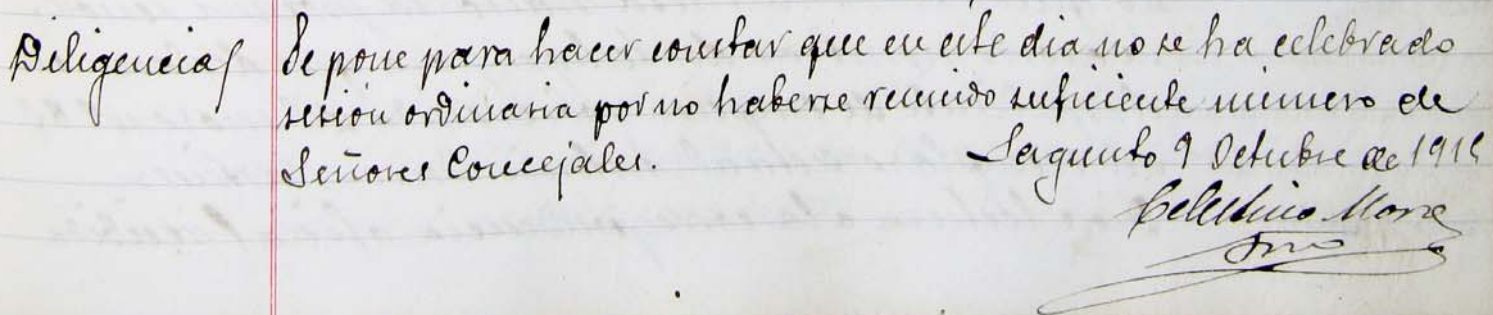 Diligencia
Se pone para hacer constar que en este dia no se ha celebrado
sesion ordinaria por no haberse reunido suficiente numero de
Señores Concejales. Sagunto 9 Octubre de
Celestino
Srio